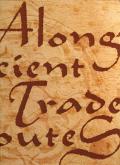 Along
cient
Trade
outes